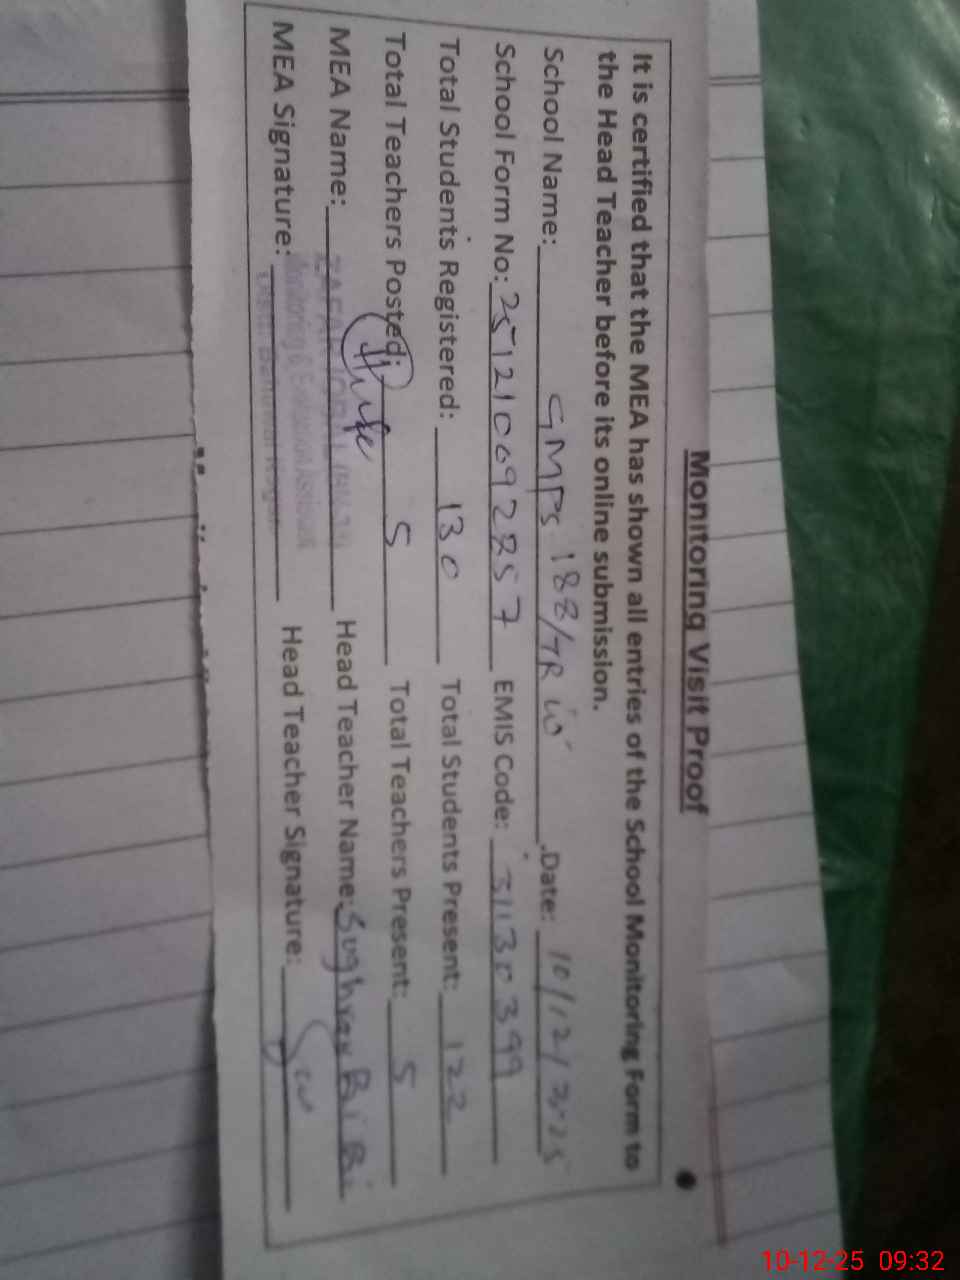 Monitoring Visit Proof
It is certified that the MEA has shown all entries of the School Monitoring Form to
the Head Teacher before its online submission.
School Name: GMPS 188/7R Date: 10/12/2025
School Form No: 251210092857 EMIS Code: 31130399
Total Students Registered: 130 Total Students Present: 122
Total Teachers Posted: 5 Total Teachers Present: 5
MEA Name: Head Teacher Name: Sughran Bi Bi
MEA Signature: Head Teacher Signature:
10-12-25 09:32